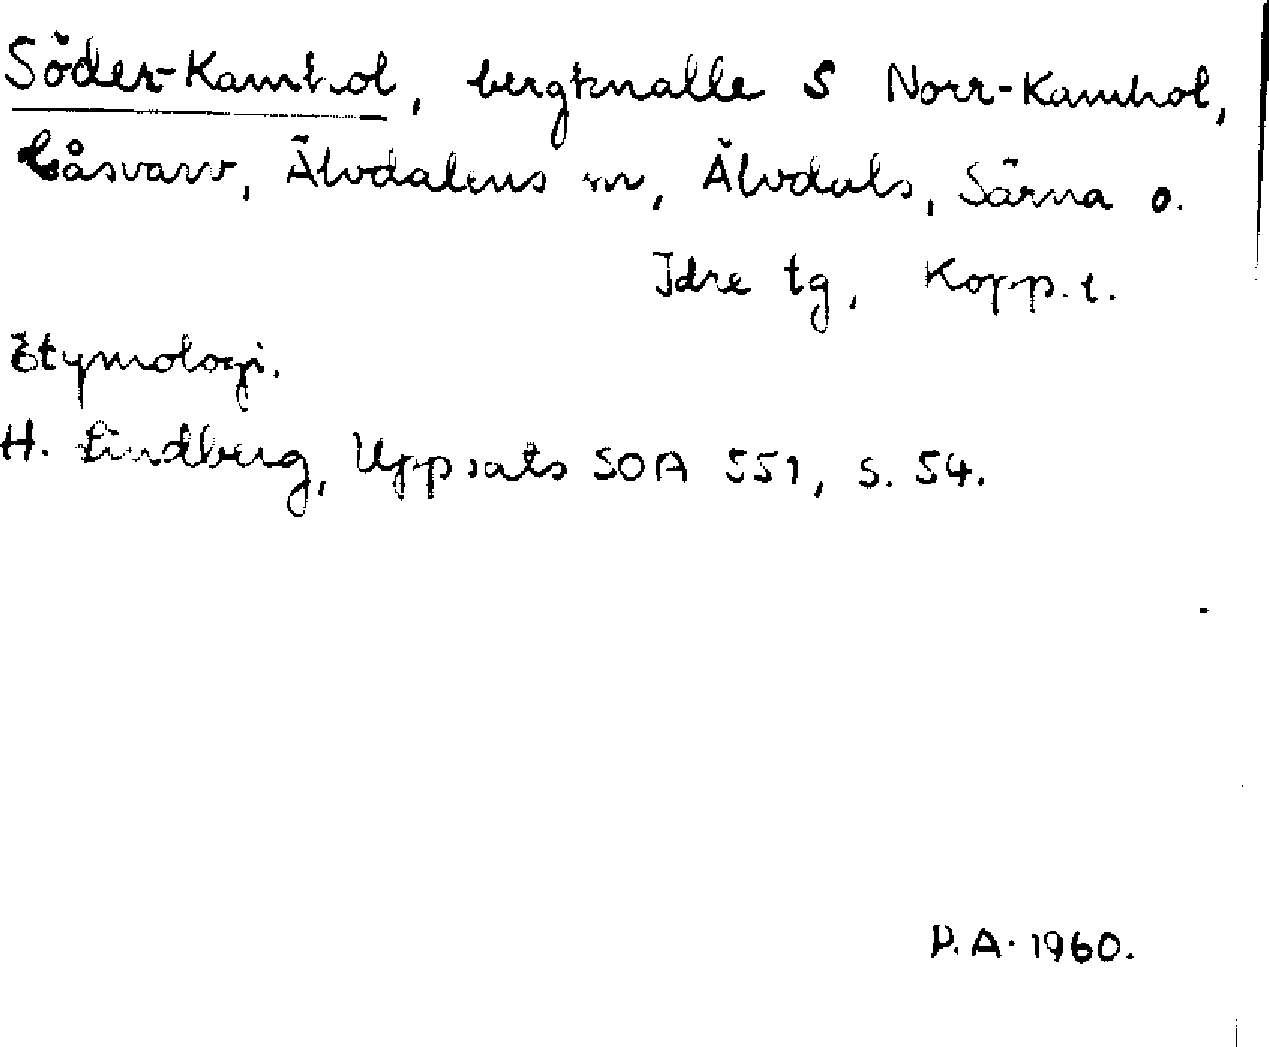 Söder-Kamhol, bergknalle S Norr-Kamhol,
Gåsvarv, Älvdalens sn, Älvdals, Särna o.
Idre tg, Kopp. l.
Etymologi.
H. Lindberg, Uppsats SOA 551, s. 54.
D. A. 1960.